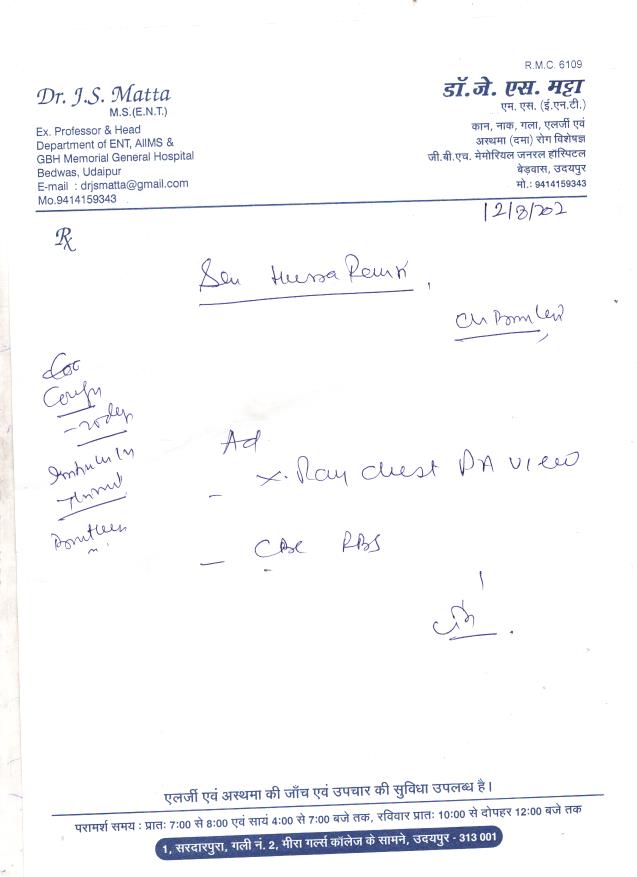 R.M.C. 6109
Dr. J.S. Matta
M.S.(E.N.T.)
Ex. Professor & Head
Department of ENT, AIIMS &
GBH Memorial General Hospital
Bedwas, Udaipur
E-mail : drjsmatta@gmail.com
Mo.9414159343
डॉ.जे. एस. मट्टा
एम. एस. (ई.एन.टी.)
कान, नाक, गला, एलर्जी एवं
अस्थमा (दमा) रोग विशेषज्ञ
जी.बी.एच. मेमोरियल जनरल हॉस्पिटल
बेड़वास, उदयपुर
मो.: 9414159343
12/8/202
Rx
Ad
- X. Ray chest PA view
- CBC RBS
एलर्जी एवं अस्थमा की जाँच एवं उपचार की सुविधा उपलब्ध है।
परामर्श समय : प्रातः 7:00 से 8:00 एवं सायं 4:00 से 7:00 बजे तक, रविवार प्रातः 10:00 से दोपहर 12:00 बजे तक
1, सरदारपुरा, गली नं. 2, मीरा गर्ल्स कॉलेज के सामने, उदयपुर - 313 001